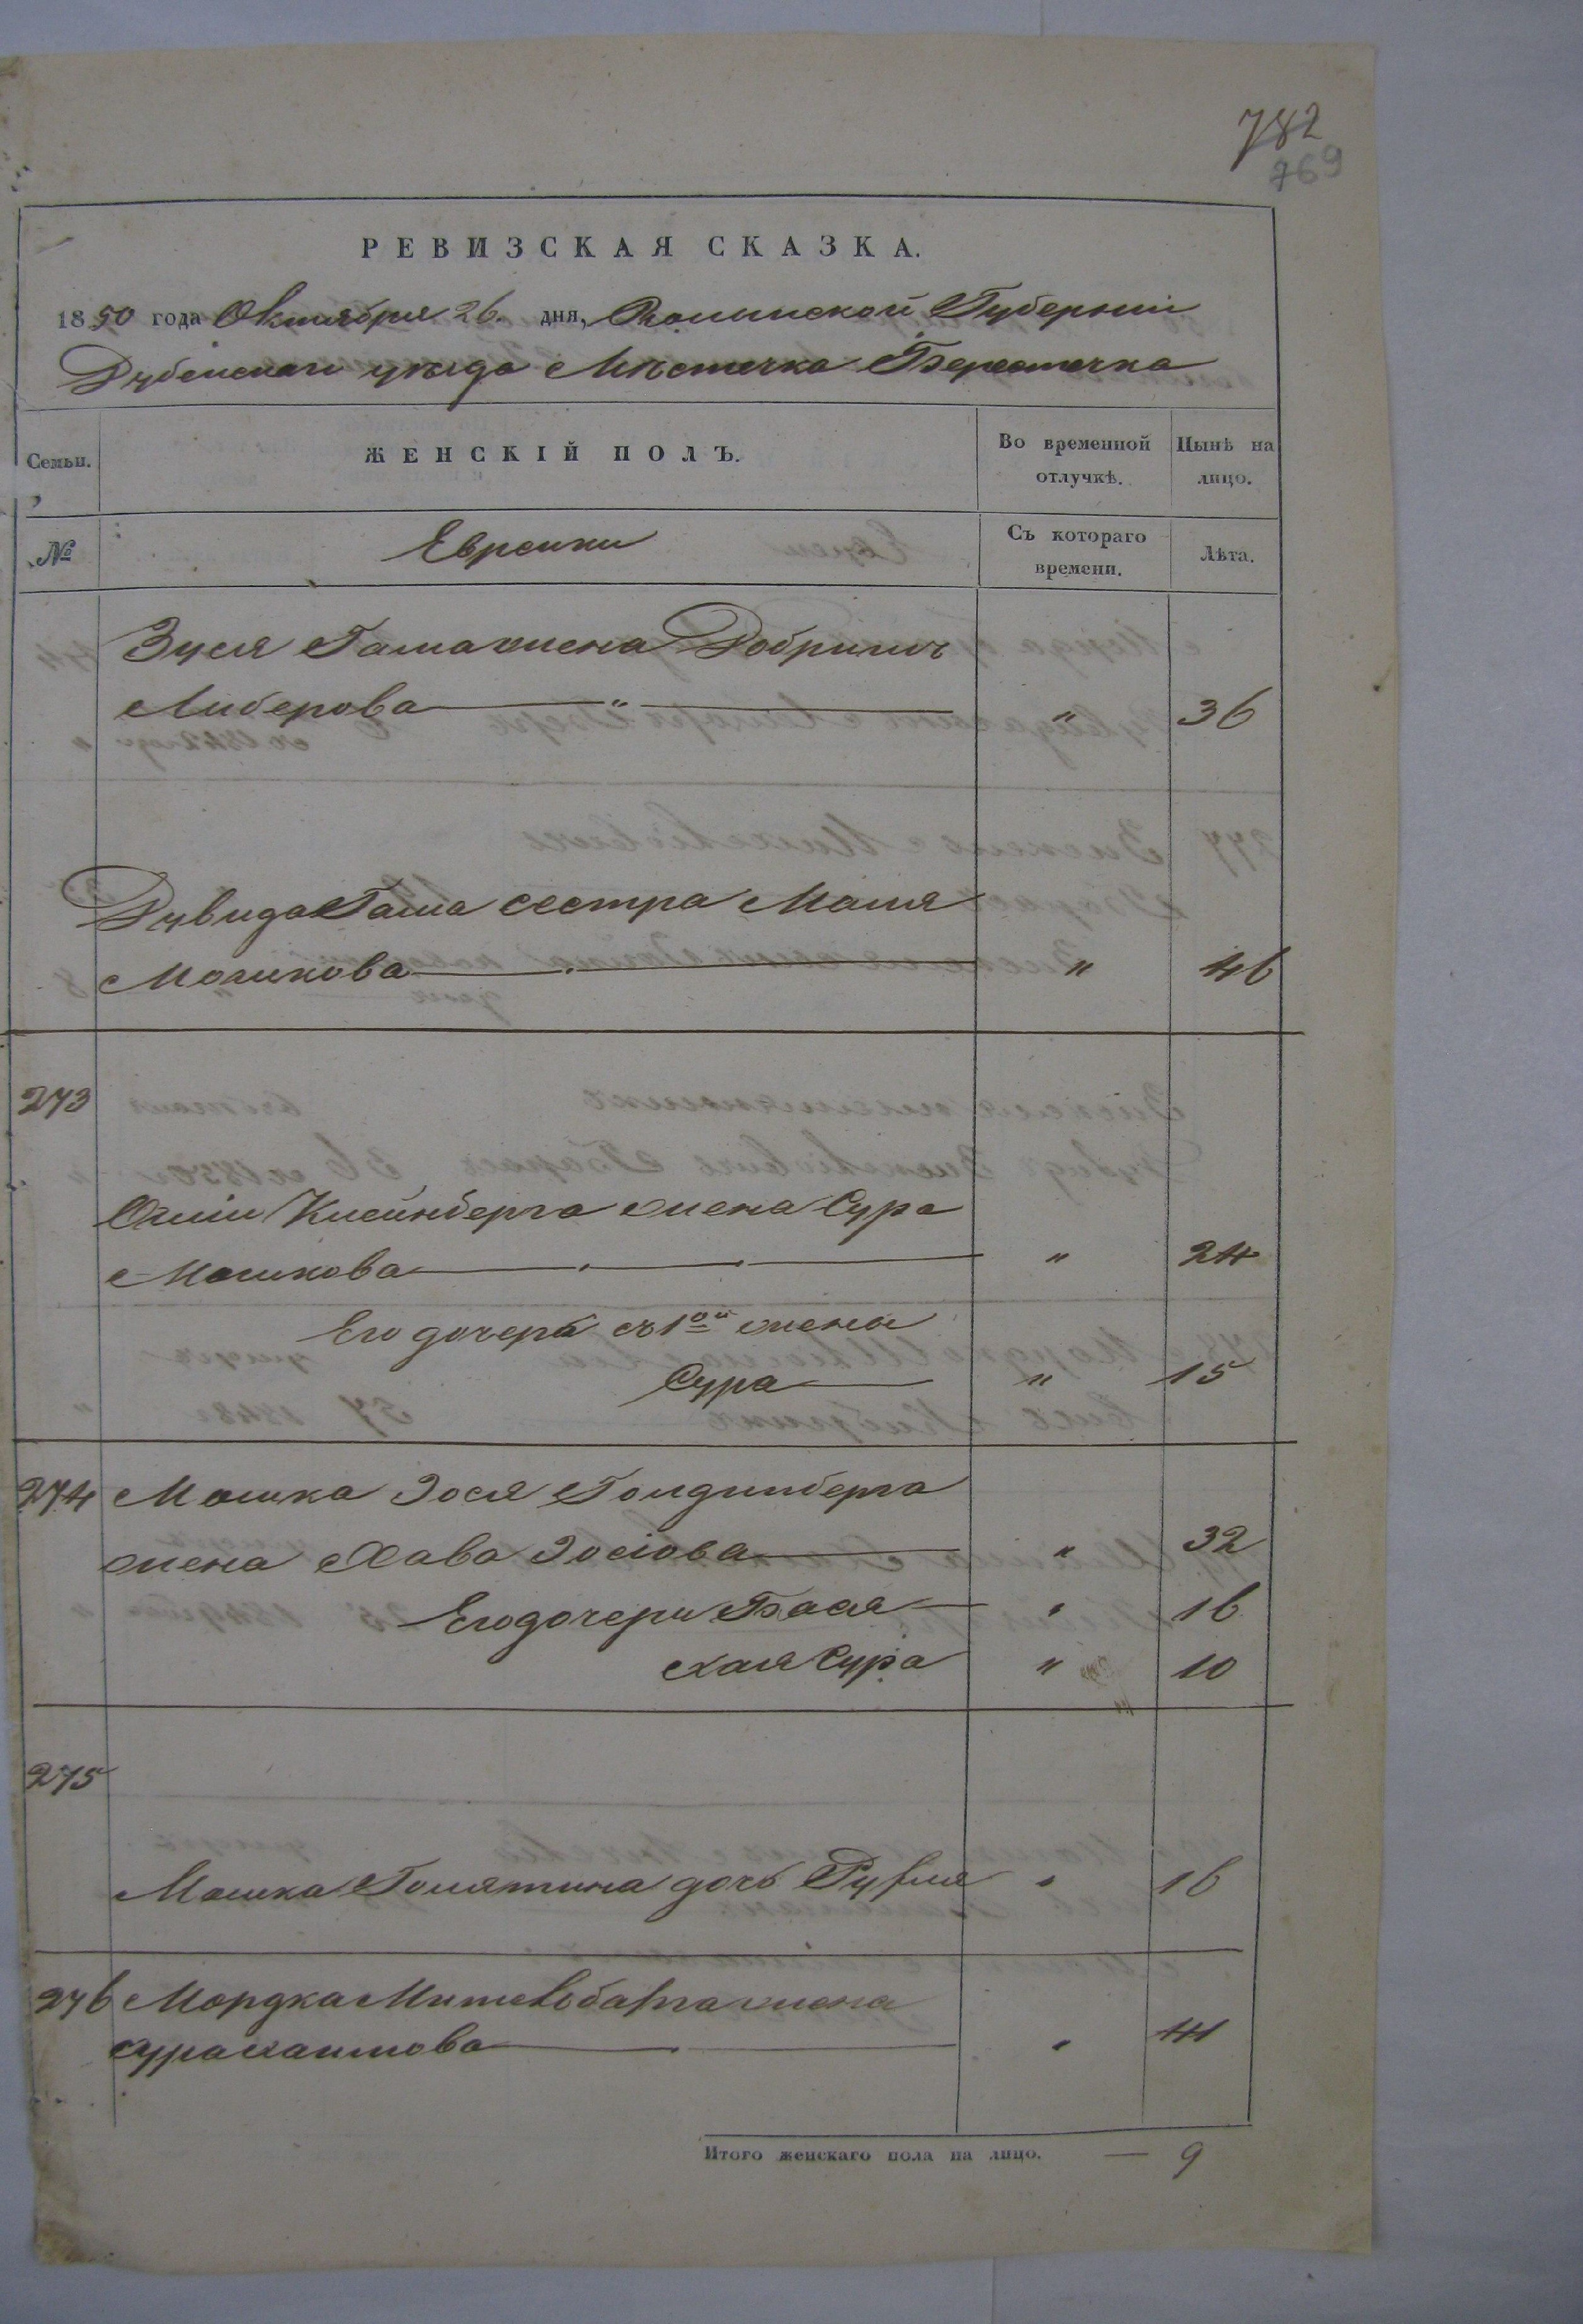 782
769
РЕВИЗСКАЯ СКАЗКА.
1850 года Октября 26. дня, Волынской Губерніи
Дубенскаго уѣзда Мѣстечка Берестечка
Семьи. ЖЕНСКІЙ ПОЛЪ. Во временной отлучкѣ. Нынѣ на лицо.
№ Еврейки Съ котораго времени. Лѣта.
Зуся Гаша жена Добришъ
Либерова " " 36
Рувида Гаша сестра Маля
Мошкова " 46
273
Клейнберга жена Сура
Мошкова " 24
Его дочерь съ 1ой жены
Сура " 15
274 Мошка Іося Голдинберга
жена Хава Іосіова " 32
Его дочери Бася " 16
Хая Сура " 10
275
Мошка Голятина дочь Рухля " 16
276 Мордка жена
Сура Хаимова " 41
Итого женскаго пола на лицо. — 9